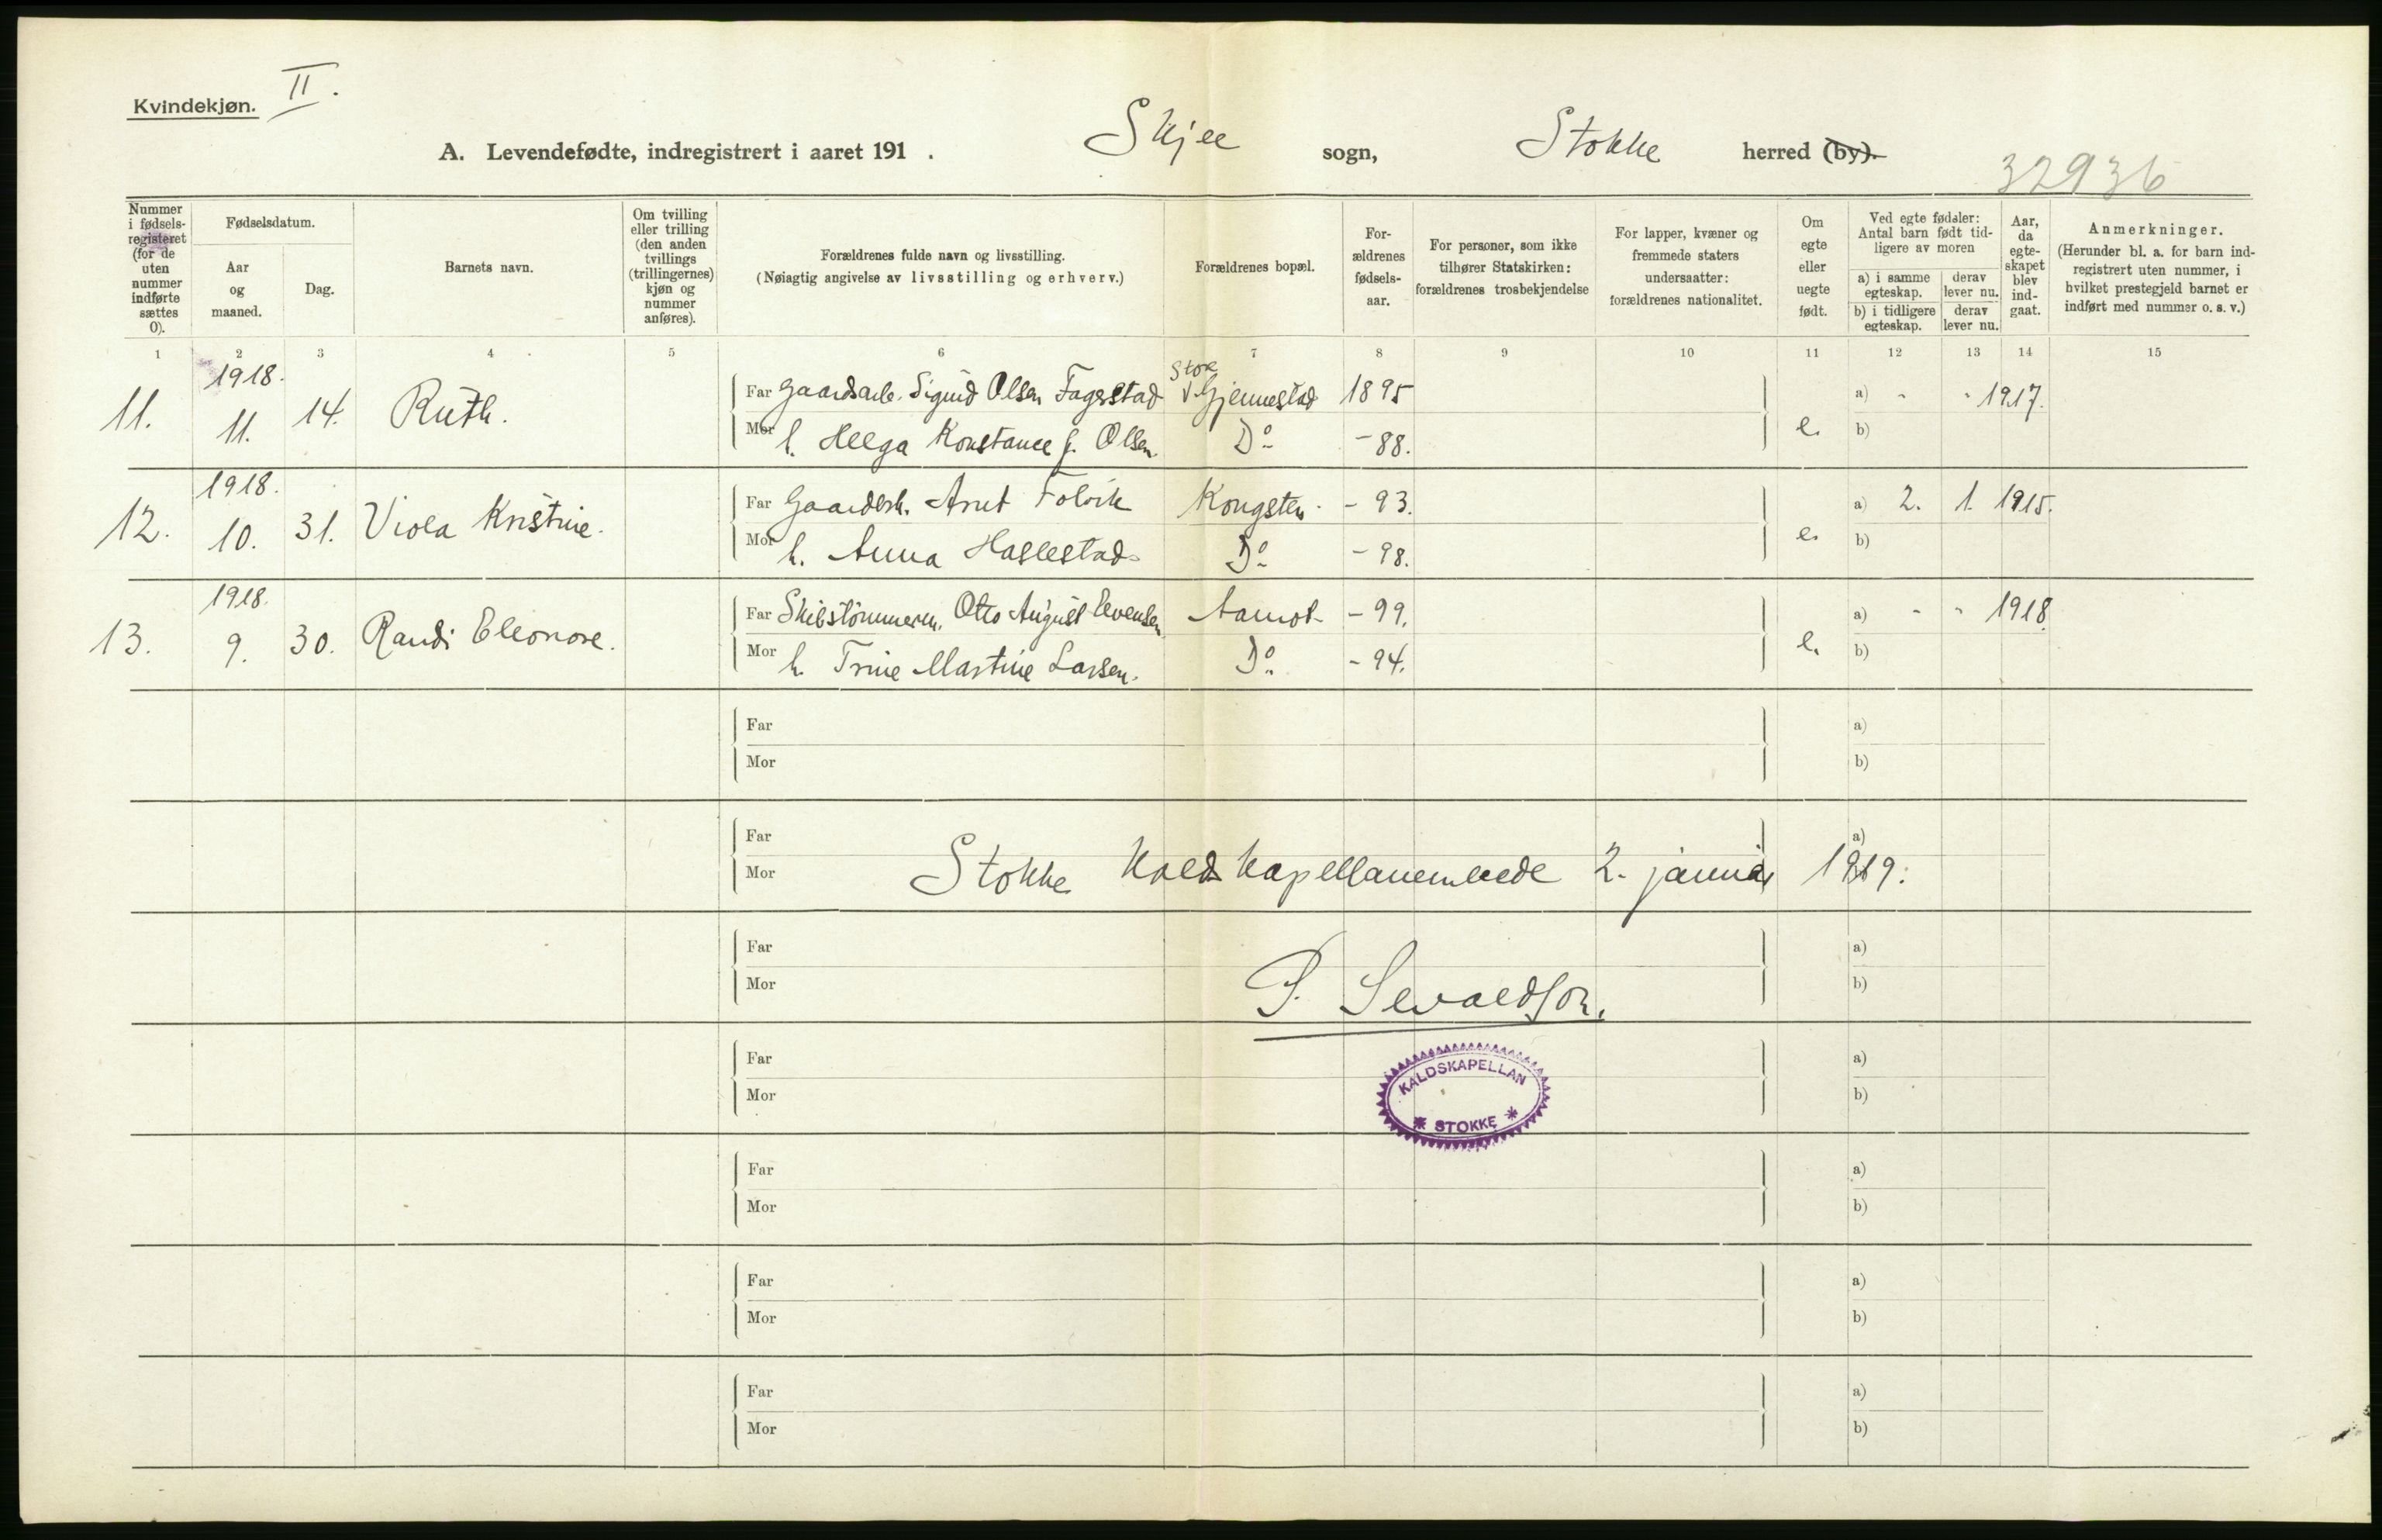 Kvindekjøn. II.
A. Levendefødte, indregistrert i aaret 191 . Skjee sogn, Stokke herred (by).
32936
Nummer i fødselsregisteret (for de uten nummer indførte sættes 0).
Fødselsdatum.
Aar og maaned.
Dag.
Barnets navn.
Om tvilling eller trilling (den anden tvillings (trillingernes) kjøn og nummer anføres).
Forældrenes fulde navn og livsstilling.
(Nøiagtig angivelse av livsstilling og erhverv.)
Forældrenes bopæl.
Forældrenes fødselsaar.
For personer, som ikke tilhører Statskirken: forældrenes trosbekjendelse
For lapper, kvæner og fremmede staters undersaatter: forældrenes nationalitet.
Om egte eller uegte født.
Ved egte fødsler: Antal barn født tidligere av moren
a) i samme egteskap.
derav lever nu.
b) i tidligere egteskap.
derav lever nu.
Aar, da egteskapet blev indgaat.
Anmerkninger.
(Herunder bl. a. for barn indregistrert uten nummer, i hvilket prestegjeld barnet er indført med nummer o. s. v.)
1 2 3 4 5 6 7 8 9 10 11 12 13 14 15
11. 1918. 11. 14. Ruth. Far Gaardsarb. Sigurd Olsen Fagerstad Stok V. Gjennestad 1895 a) - - 1917.
Mor h. Helga Konstance f. Olsen. Do - 88. e. b)
12. 1918. 10. 31. Viola Kristine. Far Gaardbr. Arnt Tolsrk Kongsten - 93. a) 2. 1. 1915.
Mor h. Anna Haslestad Do - 98. e. b)
13. 1918. 9. 30. Randi Eleonore. Far Skibstømmerm. Otto August Evensen Aamot - 99. a) - - 1918.
Mor h. Trine Martine Larsen. Do - 94. e. b)
Far a)
Mor b)
Far a)
Mor Stokke Kaldskapellanembede 2. januar 1919.
Far a)
Mor b)
P. Sevaldson.
Far a)
Mor b)
KALDSKAPELLAN
* STOKKE *
Far a)
Mor b)
Far a)
Mor b)
Far a)
Mor b)